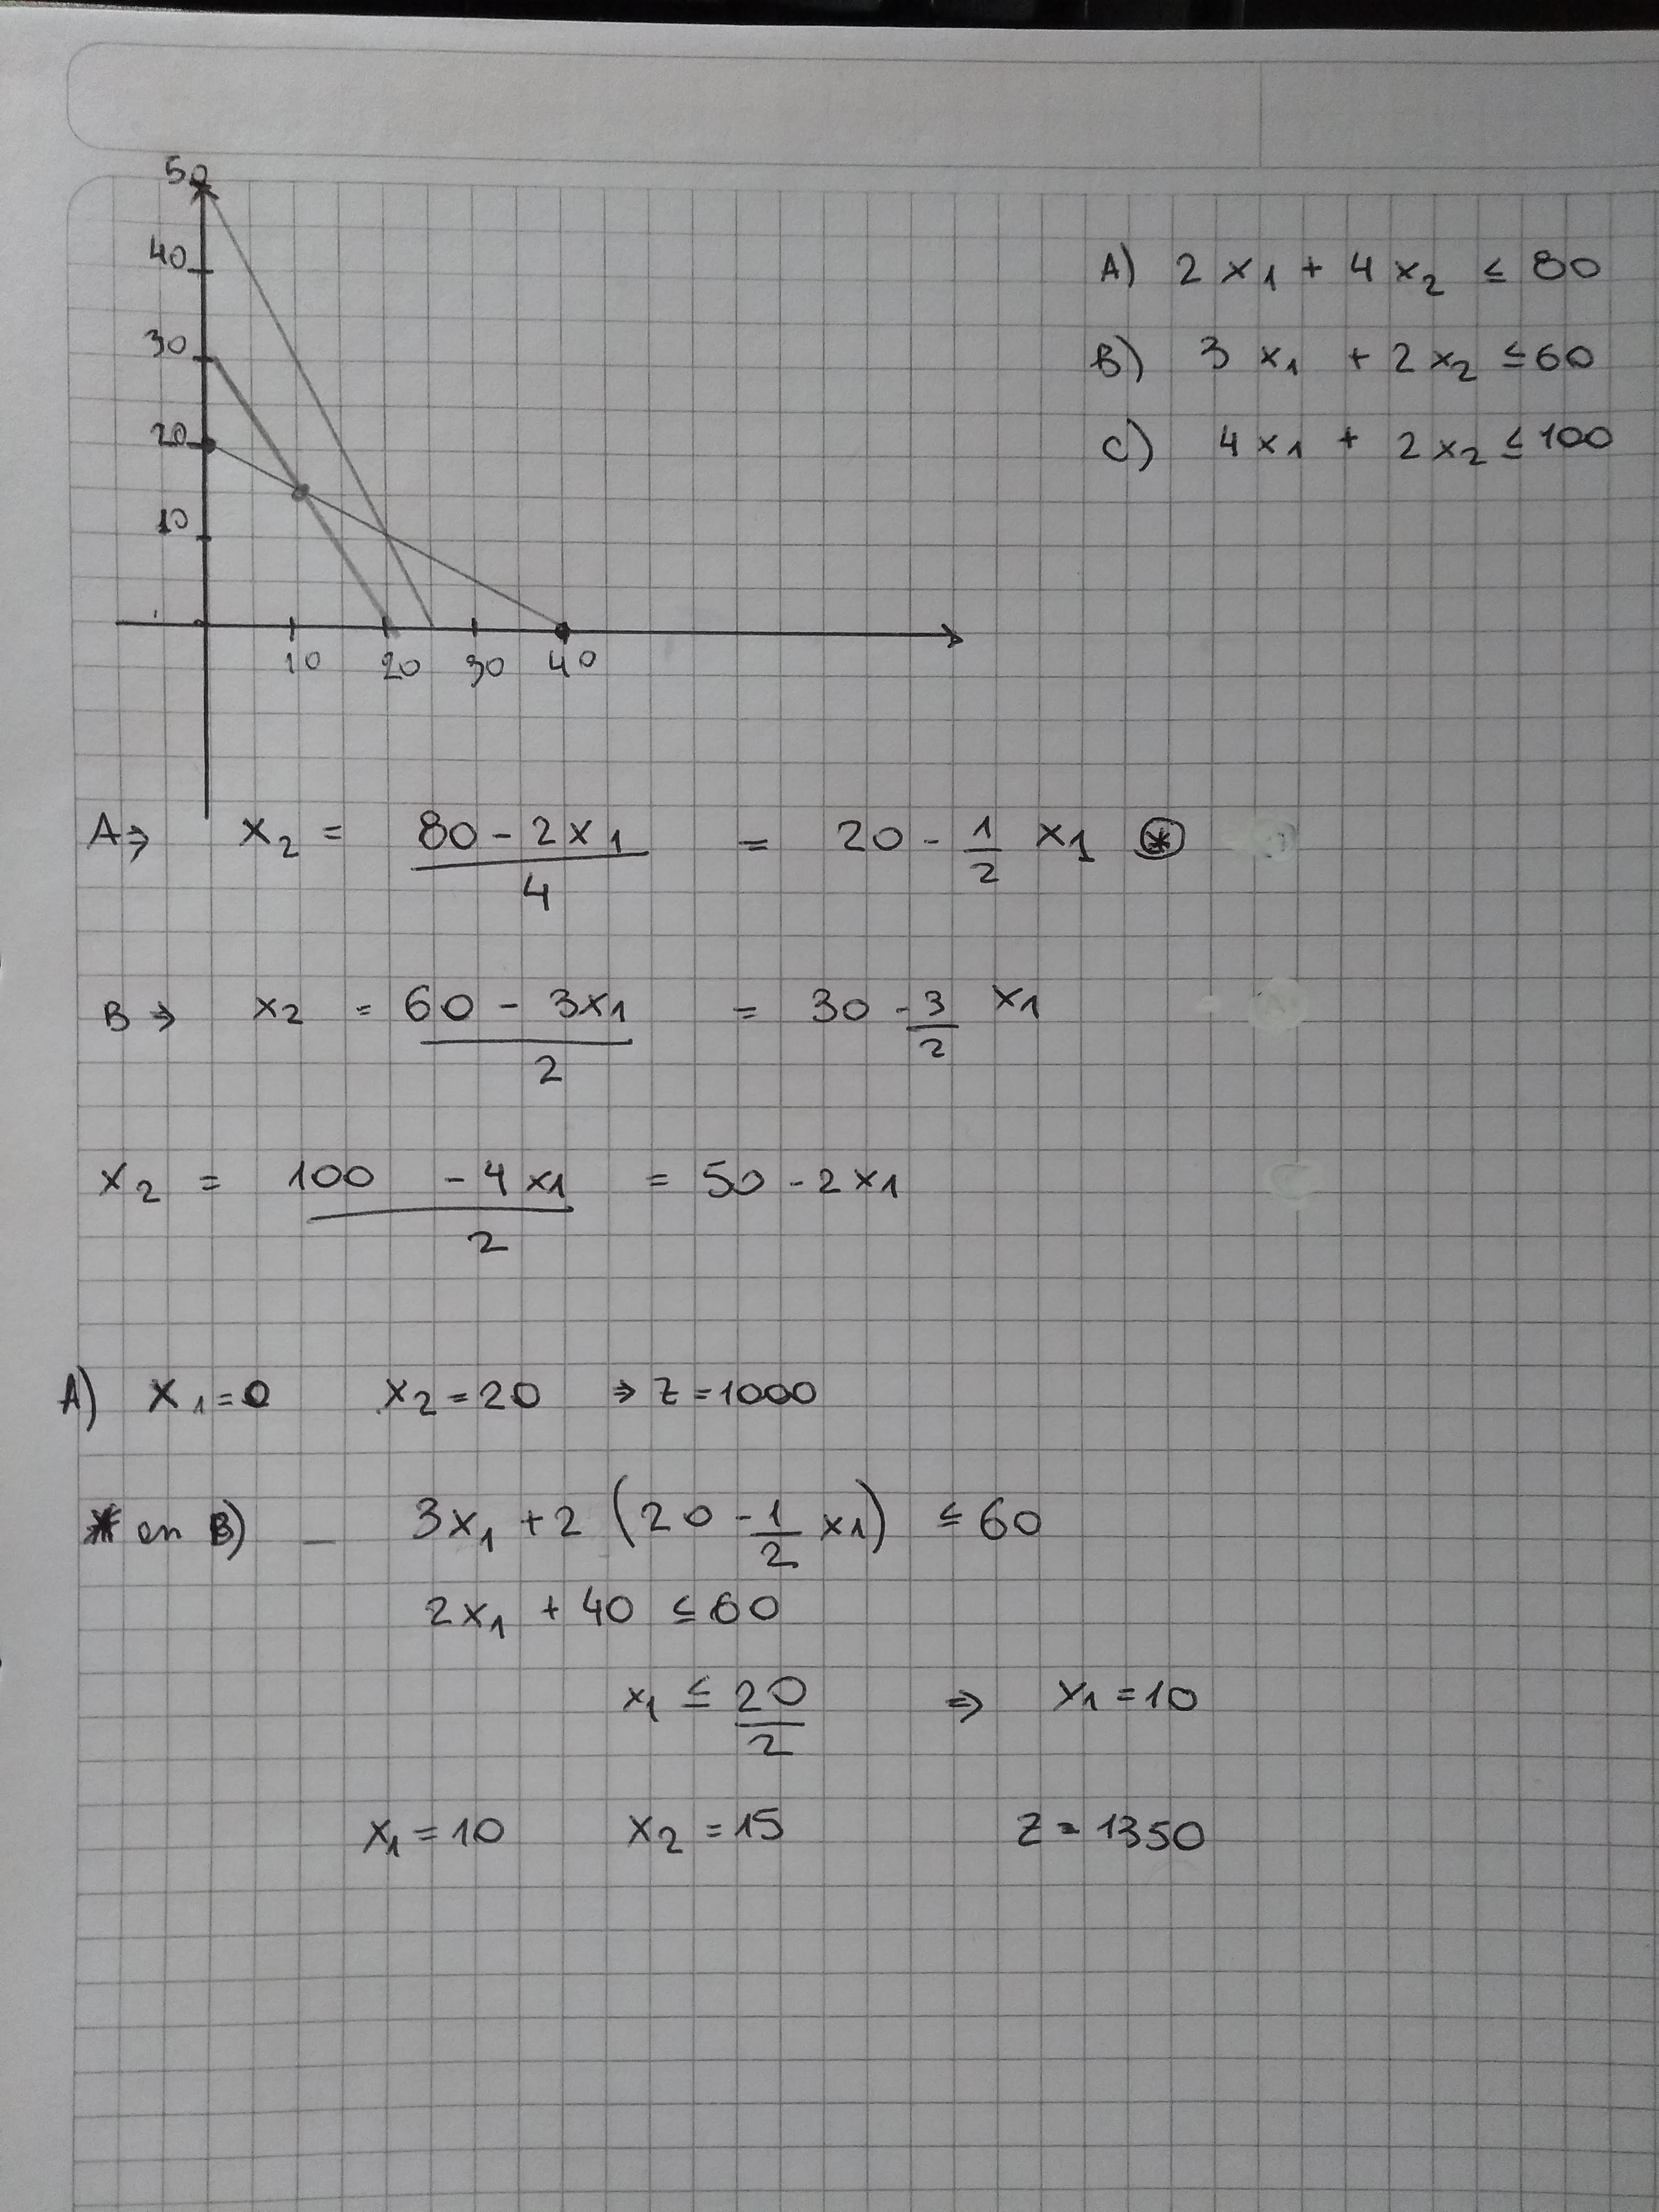 50
40
30
20
10
10 20 30 40
A) 2 x₁ + 4 x₂ ≤ 80
B) 3 x₁ + 2 x₂ ≤ 60
C) 4 x₁ + 2 x₂ ≤ 100
A ⇒ x₂ = (80 - 2x₁)/4 = 20 - 1/2 x₁ ⊛
B ⇒ x₂ = (60 - 3x₁)/2 = 30 - 3/2 x₁
x₂ = (100 - 4x₁)/2 = 50 - 2x₁
A) x₁ = 0 x₂ = 20 ⇒ Z = 1000
* en B) _ 3x₁ + 2 (20 - 1/2 x₁) ≤ 60
2x₁ + 40 ≤ 60
x₁ ≤ 20/2 ⇒ x₁ = 10
x₁ = 10 x₂ = 15 Z = 1350